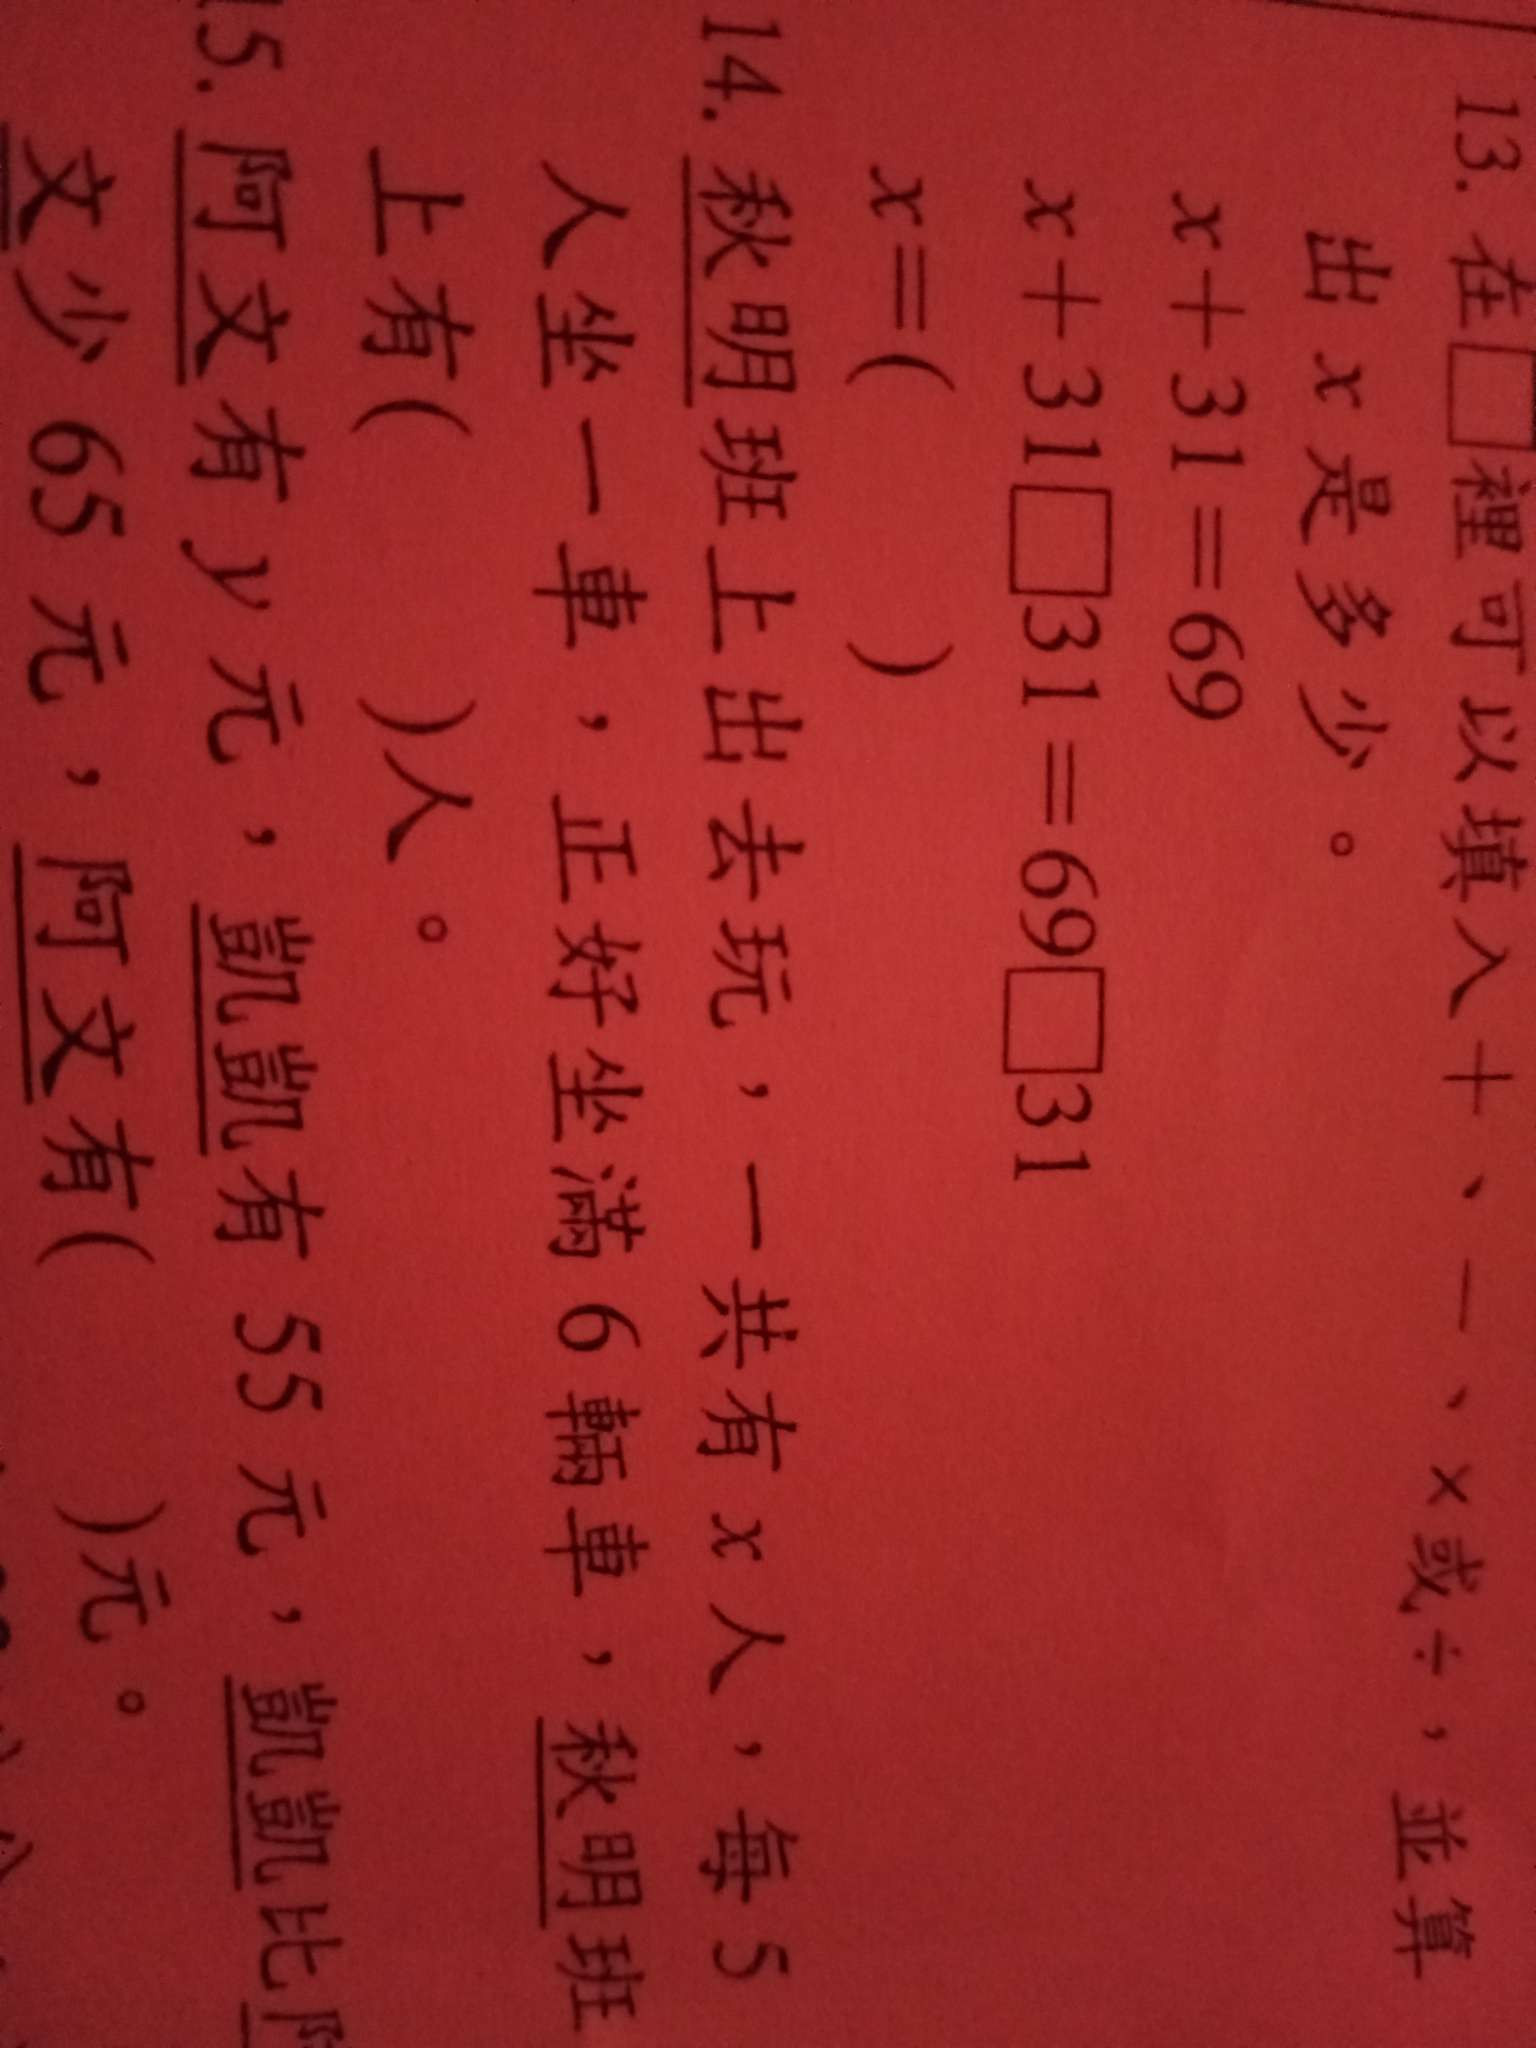 13. 在□裡可以填入＋、－、×或÷，並算
出 x 是多少。
x＋31＝69
x＋31□31＝69□31
x＝(　　　)
14. 秋明班上出去玩，一共有 x 人，每 5
人坐一車，正好坐滿 6 輛車，秋明班
上有(　　　)人。
15. 阿文有 y 元，凱凱有 55 元，凱凱比阿
文少 65 元，阿文有(　　　)元。